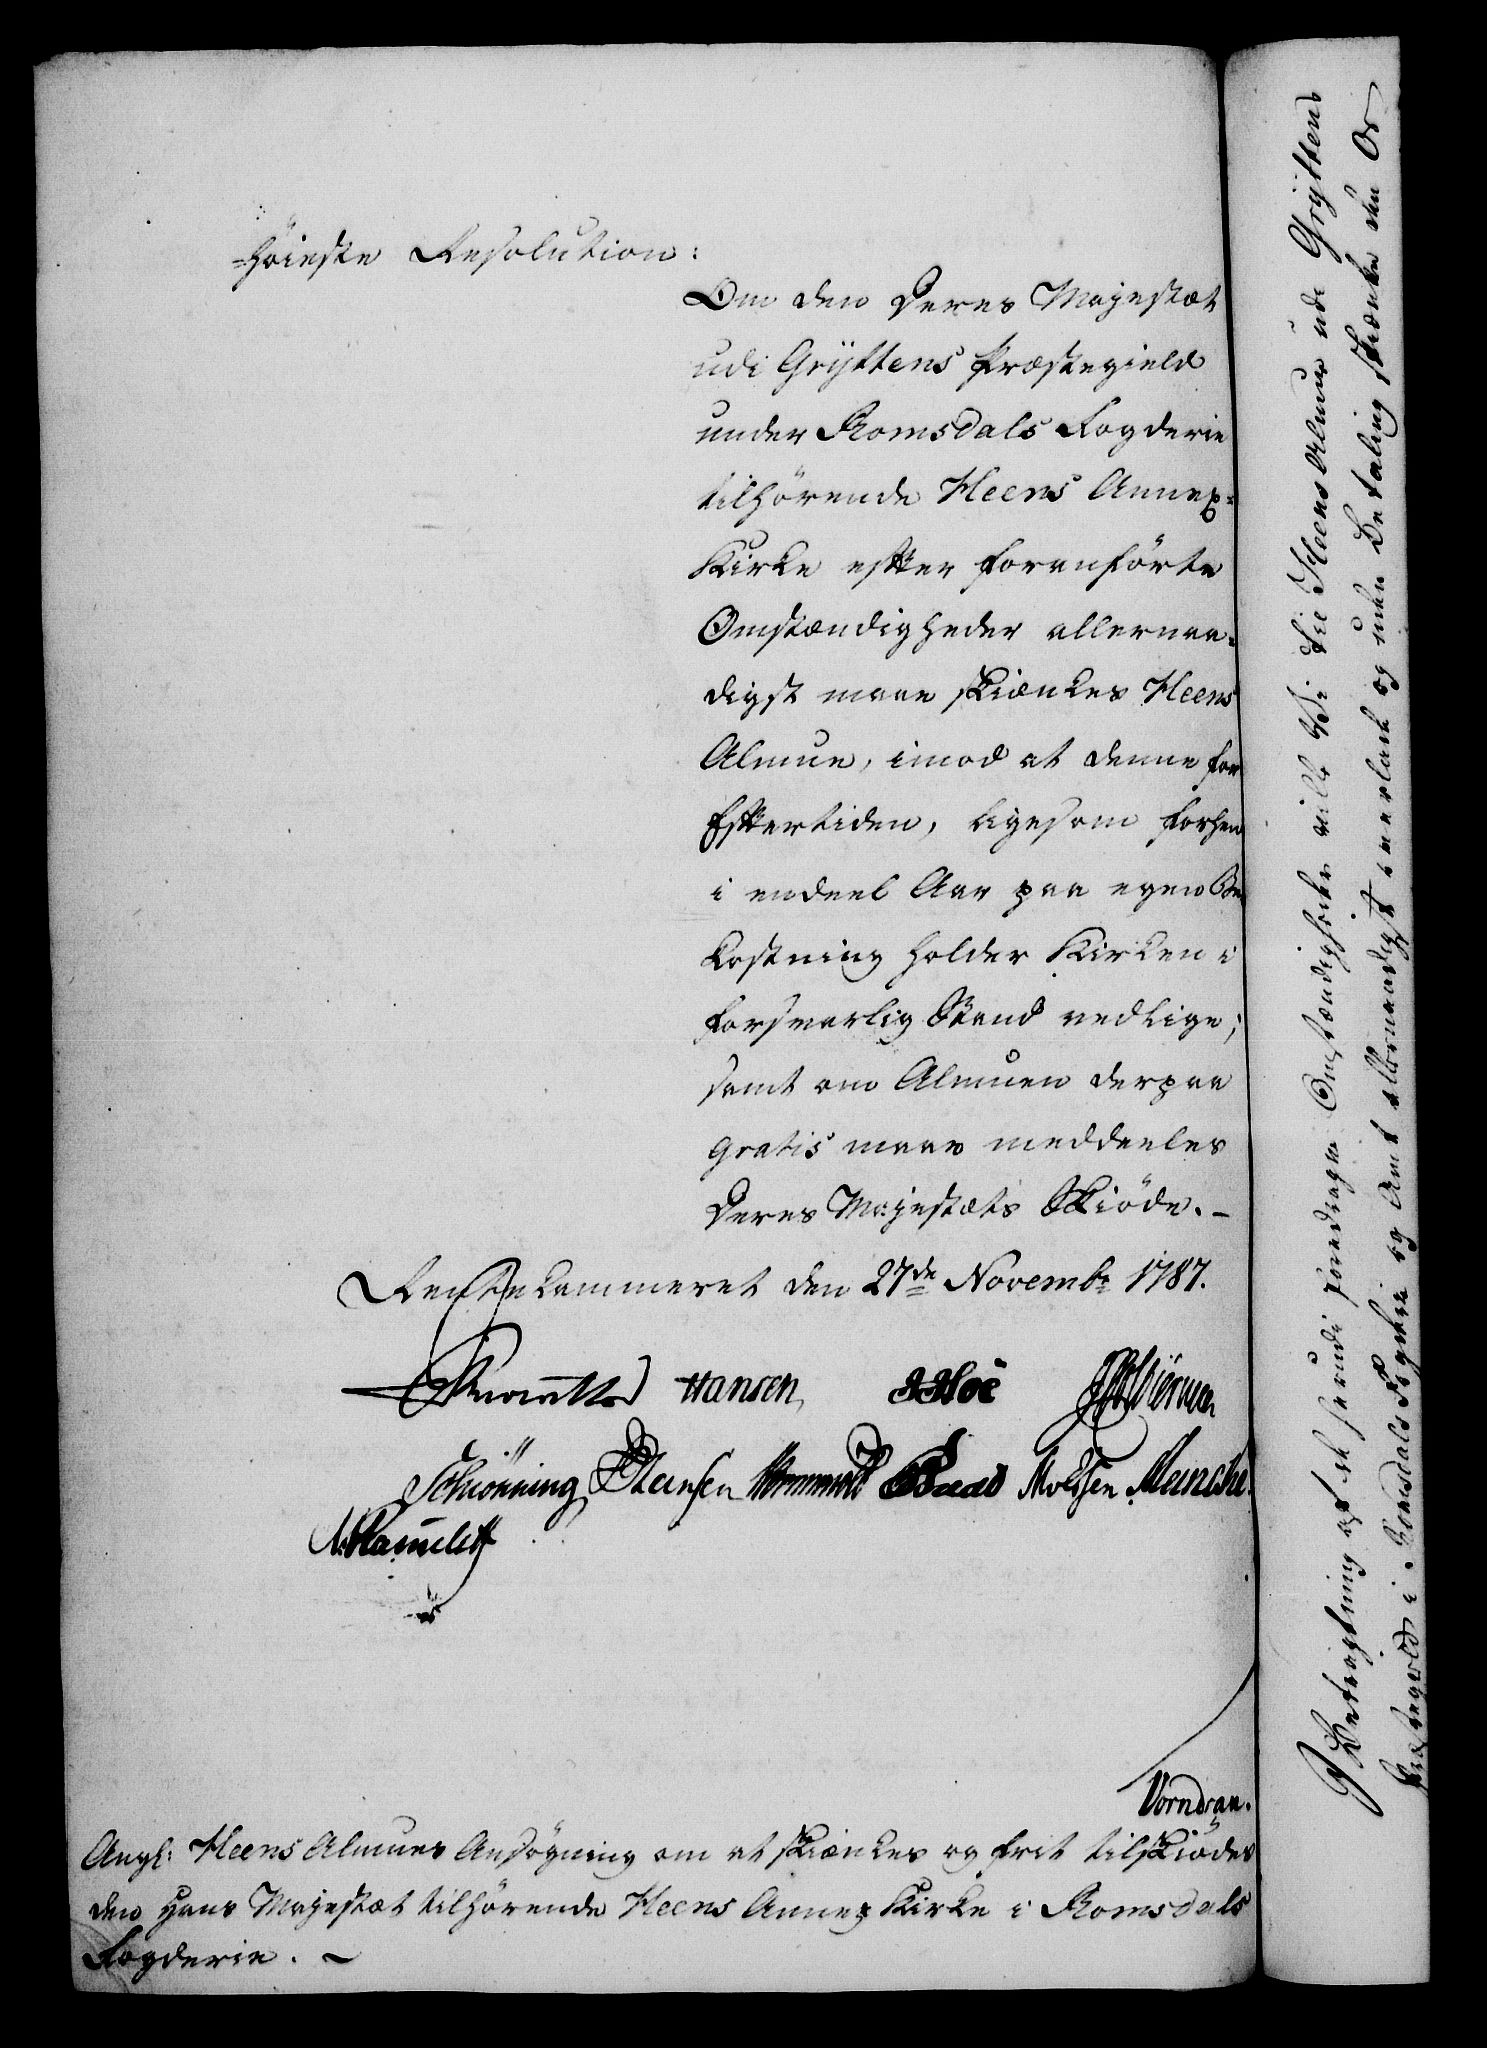 =høieste Resolution:
Om den Deres Majestæt
udi Gryttens Præstegield
under Romsdals Fogderie
tilhørende Heens Annex-
Kirke efter foranførte
Omstændigheder allernaa-
digst maae skiænkes Heens
Almue, imod at denne for
Eftertiden, ligesom forhen
i endeel Aar paa egen Be
kostning holder Kirken i
forsvarlig Stand vedlige;
samt om Almuen derpaa
gratis maae meddeeles
Deres Majestæts Skiöde. –
Rentekammeret den 27de Novembr 1787.
Hansen
Schiönning
N. Kamelett
Vorndran.
Angl: Heens Almues Ansøgning om at skiænkes og frit tilskiödes
den Hans Majestæt tilhørende Heens Annex Kirke i Romsdals
Fogderie. –
I Betragtning af de herudi foredragne Omstændigheder ville Vi til Heens Almue udi Gryttens
Præstegield i Romsdals Fogderie og Amt allernaadigst overlade og uden Betaling skiænke den Os